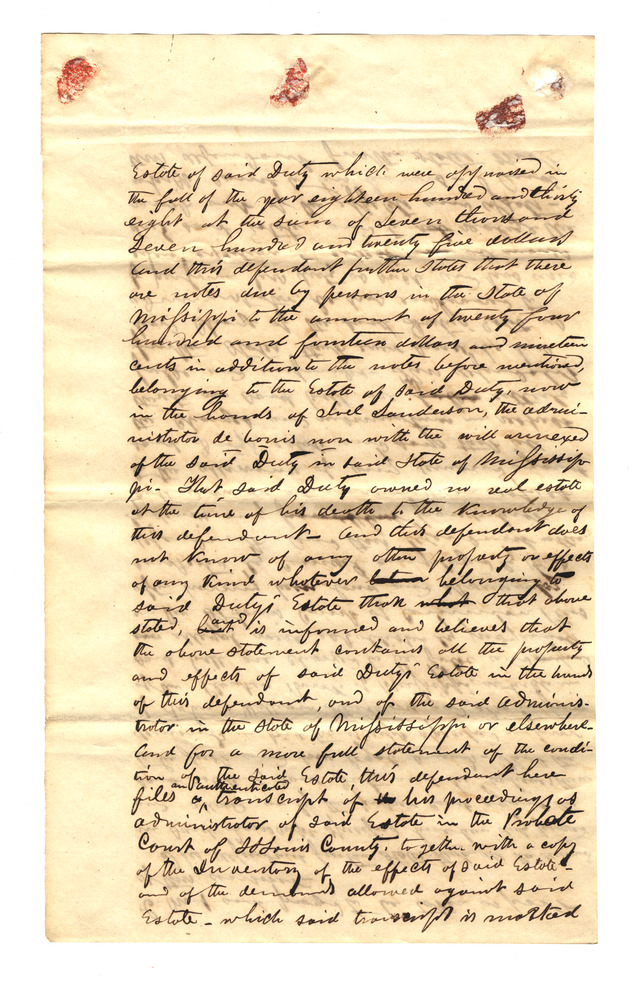 Estate of said Duty which were appraised in
the fall of the year eighteen hundred and thirty
eight at the sum of Seven thousand
Seven hundred and twenty five dollars
and this defendant further States that there
are notes due by persons in the State of
Mississippi to the amount of twenty four
hundred and fourteen dollars and nineteen
cents in addition to the notes before mentioned,
belonging to the Estate of said Duty, now
in the hands of Joel Sanderson, the admini-
nistrator de bonis non with the will annexed
of the said Duty in said State of Mississip
pi. That said Duty owned no real estate
at the time of his death to the Knowledge of
this defendant - and this defendant does
not Know of any other property or effects
of any Kind whatever belonging to
said Duty's Estate than that above
stated, and is informed and believes that
the above statement contains all the property
and effects of said Duty's Estate in the hands
of this defendant, and of the said adminis-
trator in the State of Mississippi or elsewhere.
And for a more full statement of the condi-
tion of the said Estate this defendant here
files an authenticated transcript of his proceedings as
administrator of said Estate in the Probate
Court of St Louis County. together with a copy
of the Inventory of the effects of said Estate -
and of the demands allowed against said
Estate - which said transcript is marked